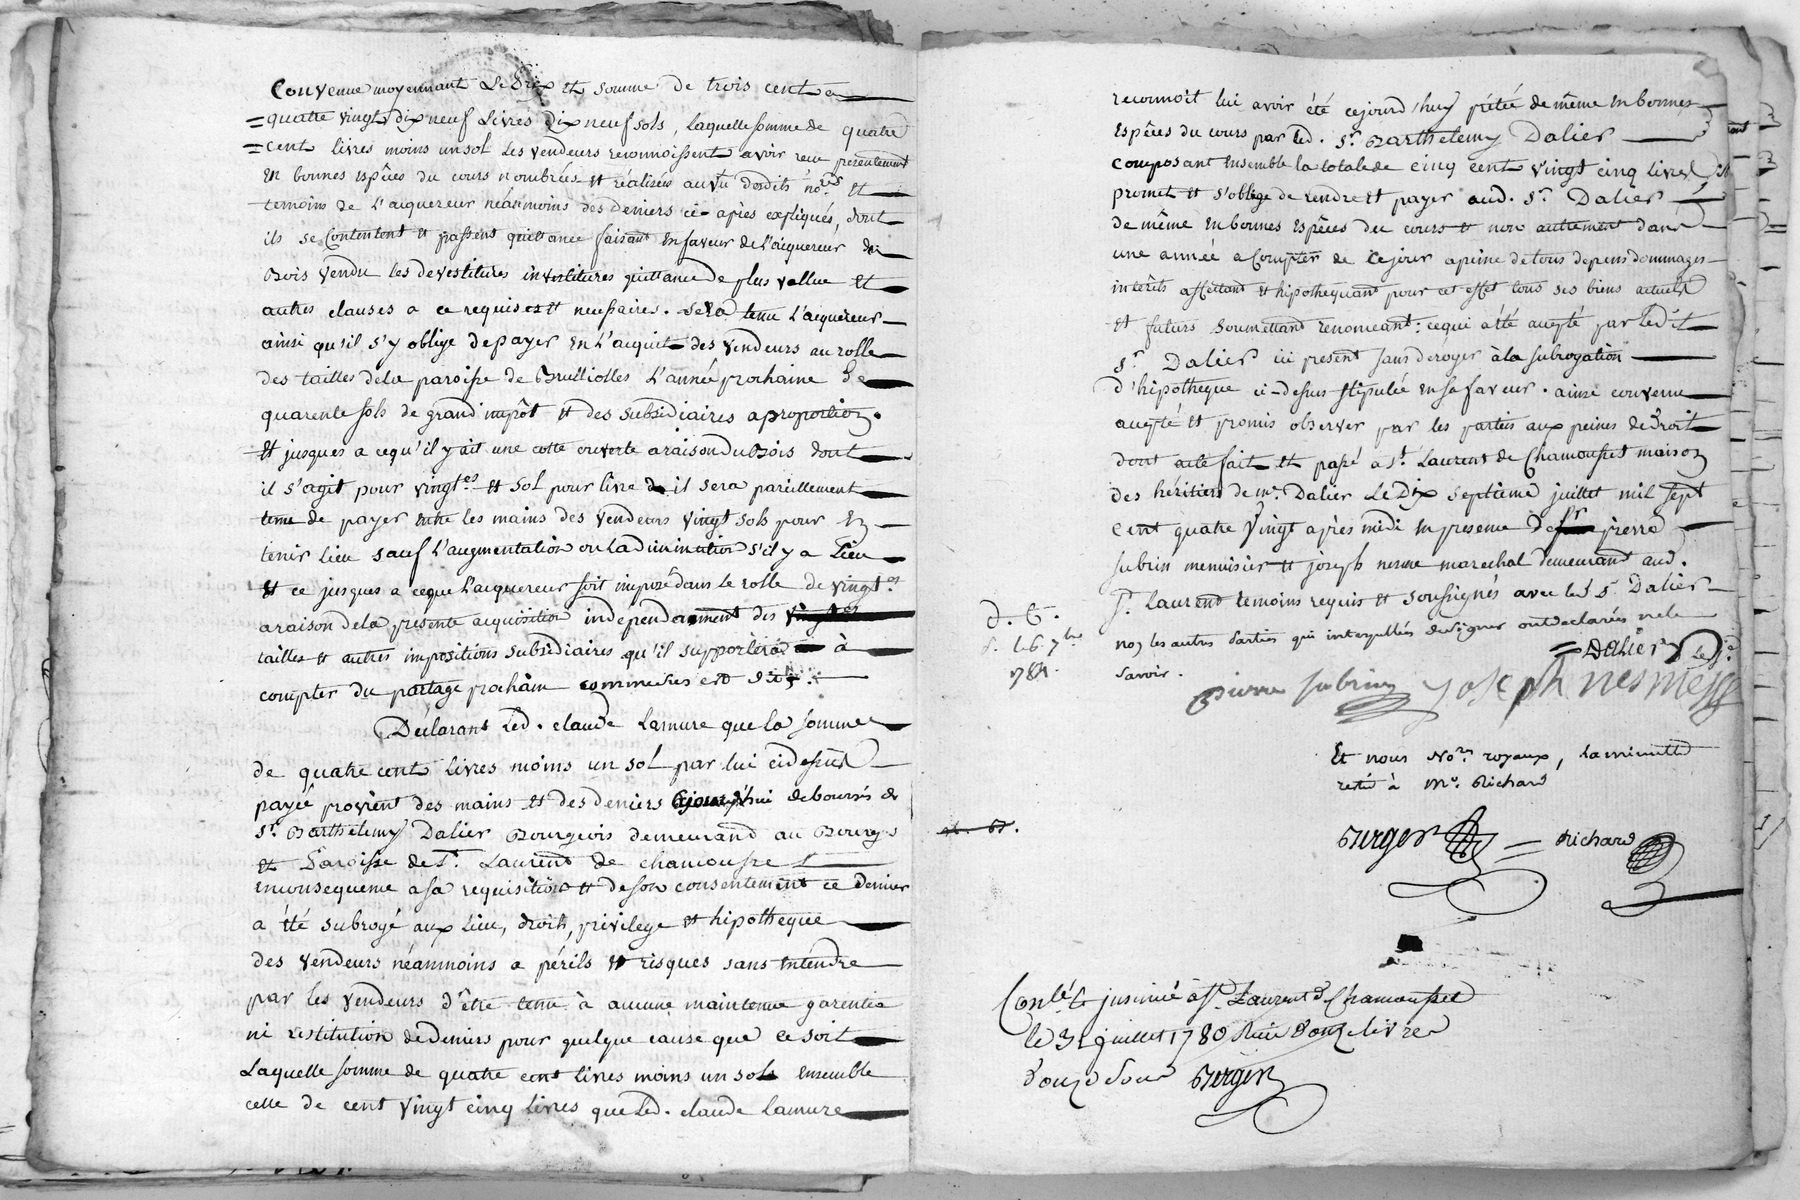 Convenue moyennant Le Prix et somme de trois cent
quatre vingt dix neuf Livres dix neuf sols, Laquelle somme de quatre
cent livres moins un sol les vendeurs reconnoissent avoir reçu presentement
en bonnes espèces du cours nombrées et réalisées au vû desdits no.res et
temoins de L'acquereur néanmoins des deniers ci-après expliqués, dont
ils se Contentent et passent quittance faisant en faveur de l'acquereur du
Bois vendu les devestitures investitures quittance de plus vallue et
autres clauses a ce requises et necessaires. sera tenu L'acquereur
ainsi qu'il s'y oblige de payer en L'acquit des vendeurs au rolle
des tailles de la paroisse de Brulliolles L'année prochaine
quarente sols de grand impôt et des subsidiaires a proportion.
et jusques a ce qu'il y ait une cotte ouverte a raison du Bois dont
il s'agit pour vingt.es et sol pour livre il sera pareillement
tenu de payer entre les mains des vendeurs vingt sols pour en
tenir lieu sauf L'augmentation ou la diminution s'il y a Lieu
et ce jusques a ceque L'acquereur soit imposé dans le rolle de vingt.es
a raison de la presente acquisition independamment des
tailles et autres impositions subsidiaires qu'il supportera à
compter du partage prochain comme dessus est dit.
Déclarant Led. claude Lamure que la somme
de quatre cent livres moins un sol par lui cidessus
payée provient des mains et des deniers cejourd'hui deboursés de
Sr. Barthelemy Dalier Bourgeois demeurand au Bourg
et Paroisse de St. Laurent de chamousse
en consequence a sa requisition et de son consentement ce dernier
a été subrogé aux Lieu, droits, privilege et hipotheque
des vendeurs néanmoins a périls et risques sans entendre
par les vendeurs d'être tenu à aucune maintenue garentie
ni restitution de deniers pour quelque cause que ce soit
Laquelle somme de quatre cent livres moins un sol ensemble
celle de cent vingt cinq livres que Led. claude Lamure
reconnoit lui avoir été cejourd'huy prêtée de même en bonnes
espèces du cours par led. Sr. Barthelemy Dalier
composant ensemble la totale de cinq cent vingt cinq livres
promet et s'oblige de rendre et payer aud. Sr. Dalier
de même en bonnes espèces du cours et non autrement dans
une année a Compter de cejour apeine de tous depens dommages
intérêts affectant et hipothequant pour cet effet tous ses biens actuels
et futurs soumettant renonceant: ce qui a été accepté par Ledit
Sr. Dalier ici present sans déroger à la subrogation
d'hipotheque ci-dessus stipulée en sa faveur. ainsi convenu
accepté et promis observer par les parties aux peines de Droit
dont acte fait et passé a St. Laurent de Chamousset maison
des héritiers de Mr. Dalier Le Dix septieme juillet mil sept
cent quatre vingt après midi en presence de pierre
subrin menuisier et joseph nesme marechal demeurant aud.
St. Laurent temoins requis et soussignés avec led. Sr. Dalier
non les autres Parties qui interpellées de signer ont declarées ne le
savoir.
d. G.
1781.
Dalier
pierre subrin joseph nesme
Et nous No.res royaux, la minutte
resté à Me. Richard
Berger Richard
Conlé. & insinué à St. Laurent d. Chamousset
le 31 juillet 1780 Reçu Douze livres
Douze sous Berger